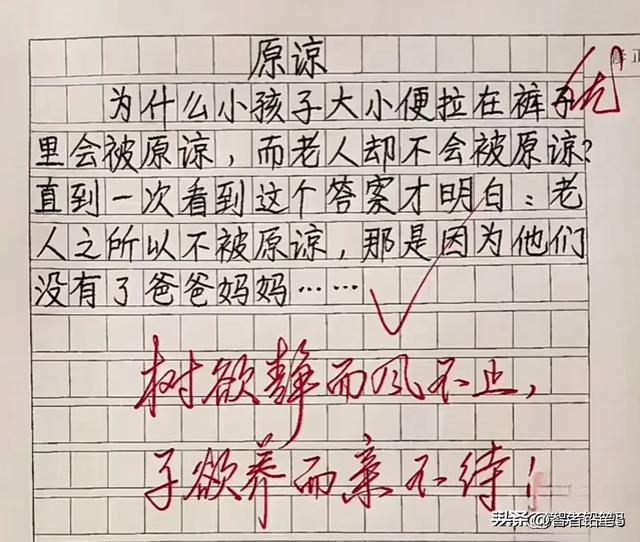 原谅
修正
为什么小孩子大小便拉在裤子
里会被原谅，而老人却不会被原谅？
直到一次看到这个答案才明白：老
人之所以不被原谅，那是因为他们
没有了爸爸妈妈……
树欲静而风不止，
子欲养而亲不待！
头条 @智者铅笔